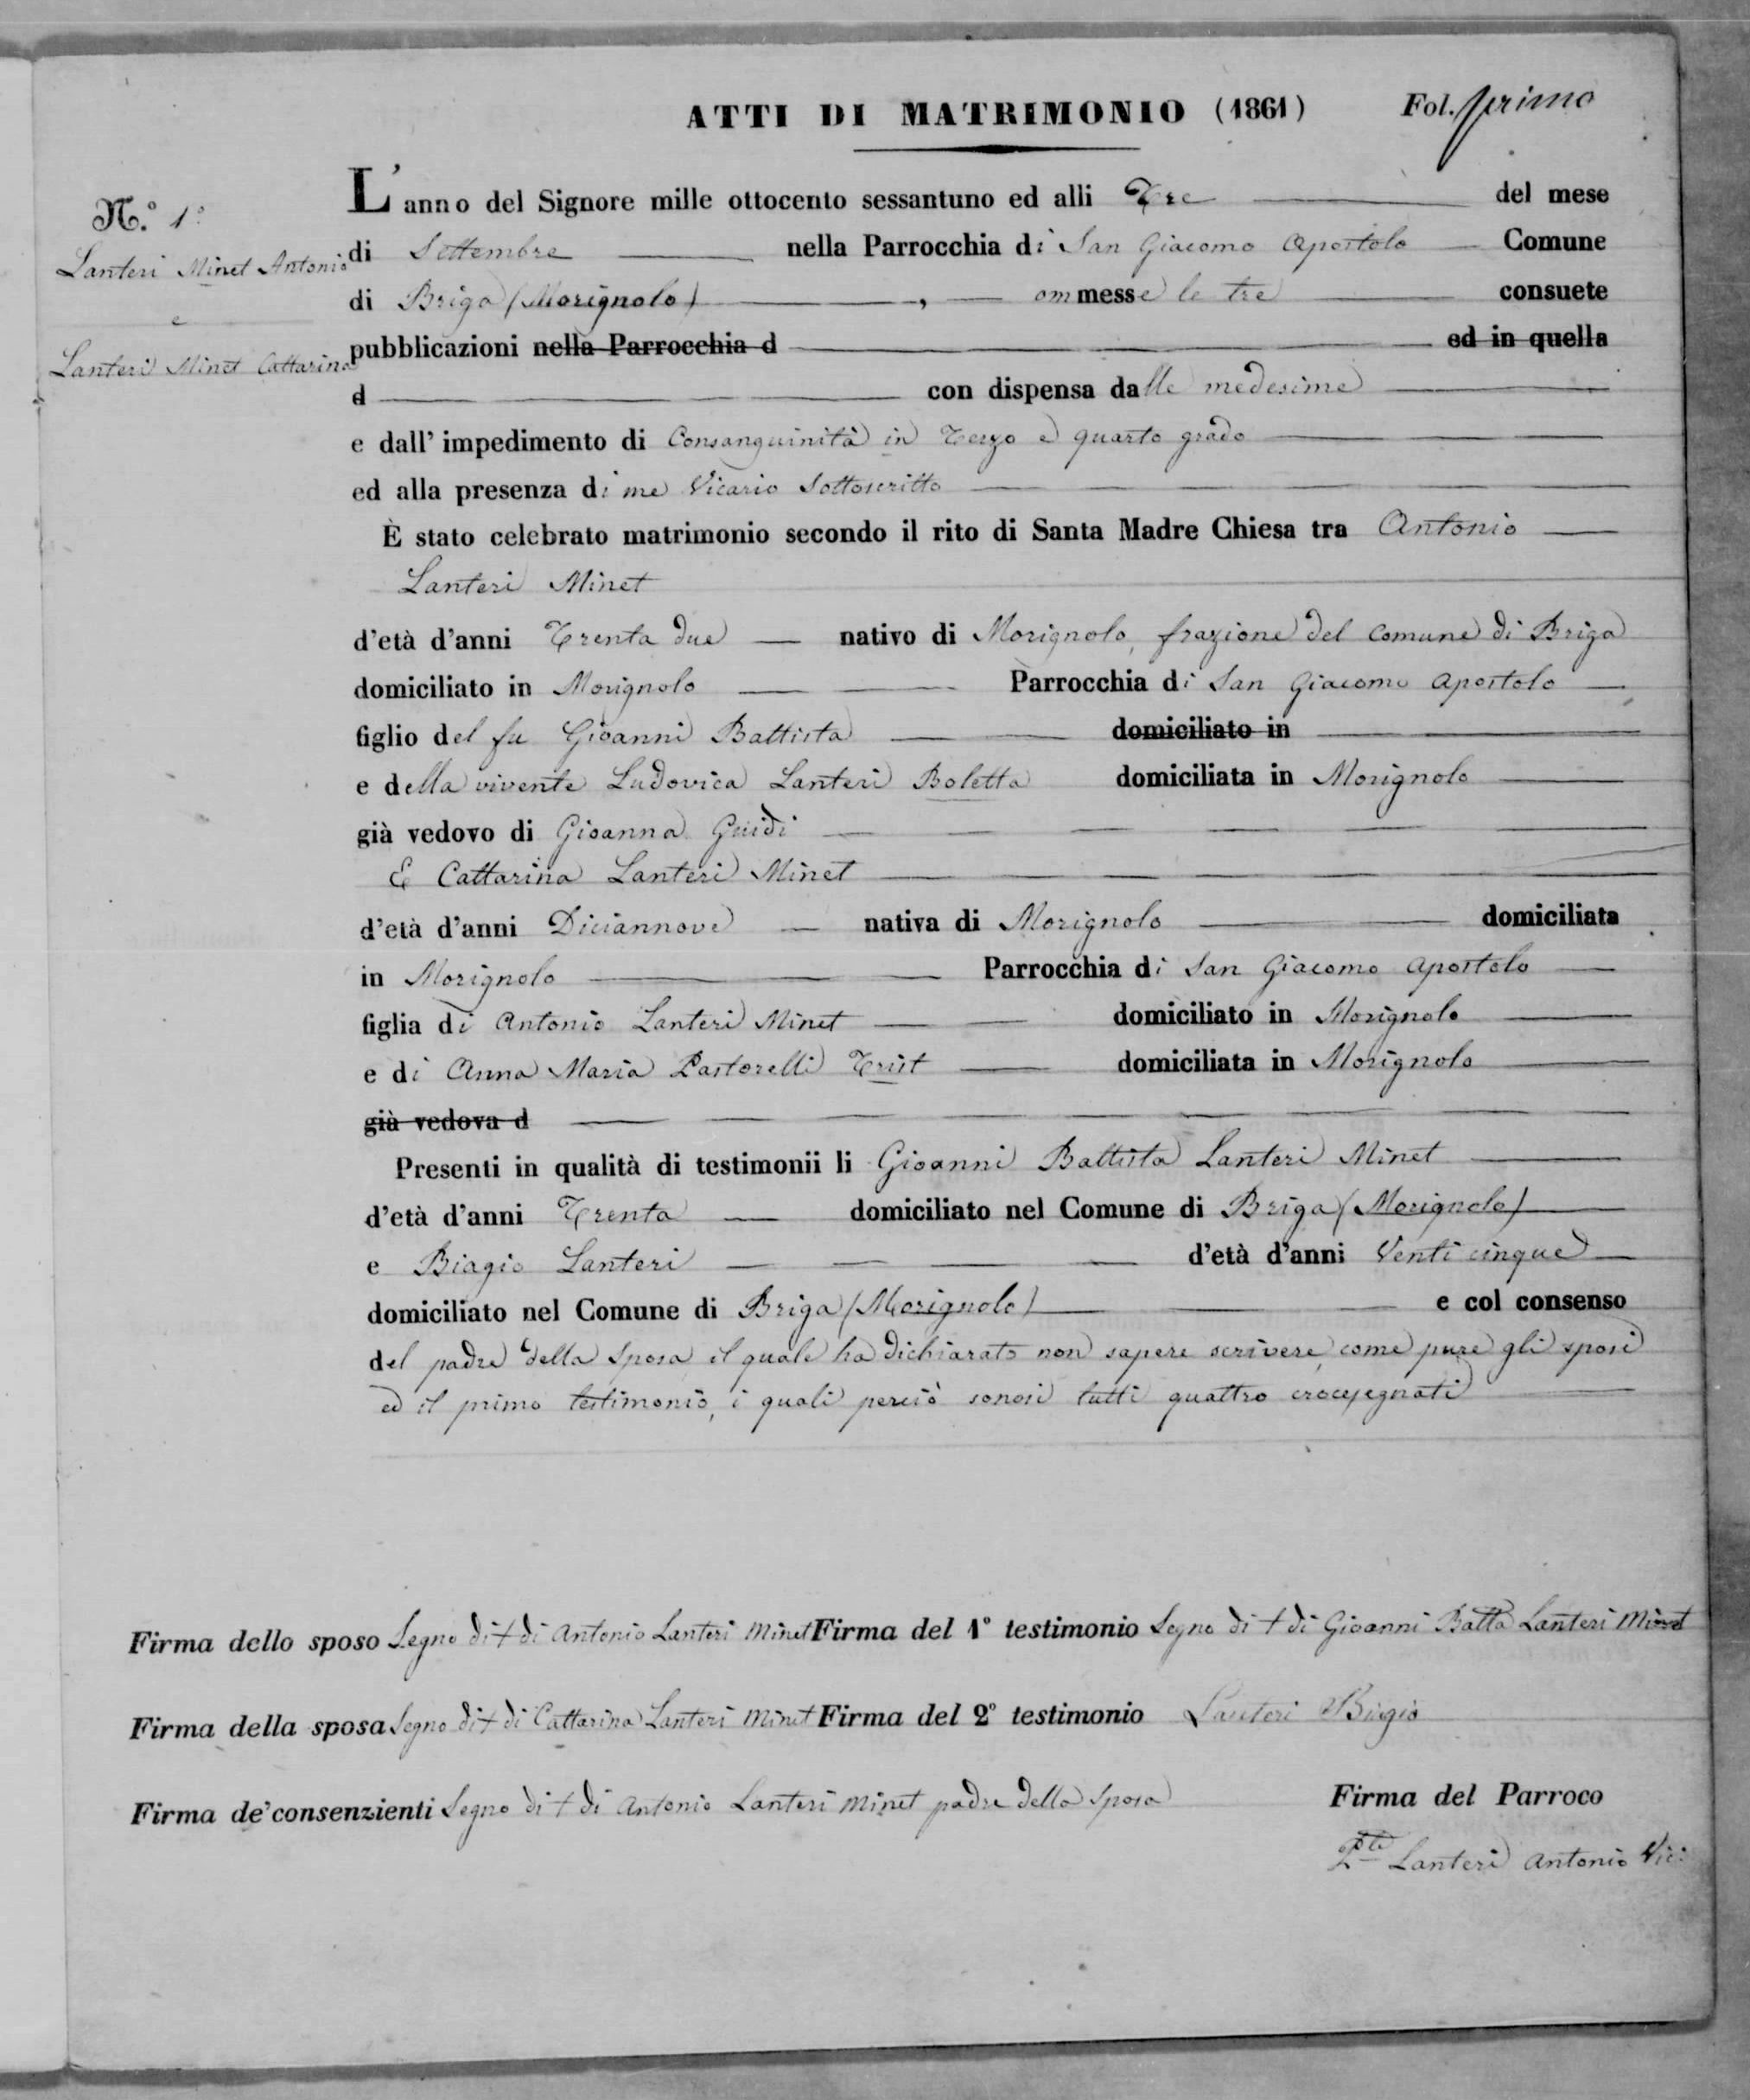 ATTI DI MATRIMONIO (1861) Fol. primo
N.° 1°
Lanteri Minet Antonio
e
Lanteri Minet Cattarina
L'anno del Signore mille ottocento sessantuno ed alli Tre del mese
di Settembre nella Parrocchia di San Giacomo Apostolo Comune
di Briga (Morignolo), ommesse le tre consuete
pubblicazioni nella Parrocchia d ed in quella
d con dispensa dalle medesime
e dall'impedimento di Consanguinità in Terzo e quarto grado
ed alla presenza di me Vicario Sottoscritto
È stato celebrato matrimonio secondo il rito di Santa Madre Chiesa tra Antonio
Lanteri Minet
d'età d'anni Trenta due nativo di Morignolo, frazione del Comune di Briga
domiciliato in Morignolo Parrocchia di San Giacomo Apostolo
figlio del fu Gioanni Battista domiciliato in
e della vivente Ludovica Lanteri Boletta domiciliata in Morignolo
già vedovo di Gioanna Guidi
E Cattarina Lanteri Minet
d'età d'anni Diciannove nativa di Morignolo domiciliata
in Morignolo Parrocchia di San Giacomo Apostolo
figlia di Antonio Lanteri Minet domiciliato in Morignolo
e di Anna Maria Pastorelli Trist domiciliata in Morignolo
già vedova d
Presenti in qualità di testimonii li Gioanni Battista Lanteri Minet
d'età d'anni Trenta domiciliato nel Comune di Briga (Morignolo)
e Biagio Lanteri d'età d'anni Venti cinque
domiciliato nel Comune di Briga (Morignolo) e col consenso
del padre della sposa il quale ha dichiarato non sapere scrivere, come pure gli sposi
ed il primo testimonio, i quali perciò sonosi tutti quattro crocesegnati
Firma dello sposo Segno di + di Antonio Lanteri Minet Firma del 1° testimonio Segno di + di Gioanni Batta Lanteri Minet
Firma della sposa Segno di + di Cattarina Lanteri Minet Firma del 2° testimonio Lanteri Biagio
Firma de' consenzienti Segno di + di Antonio Lanteri Minet padre della Sposa Firma del Parroco
Lanteri Antonio Vic: